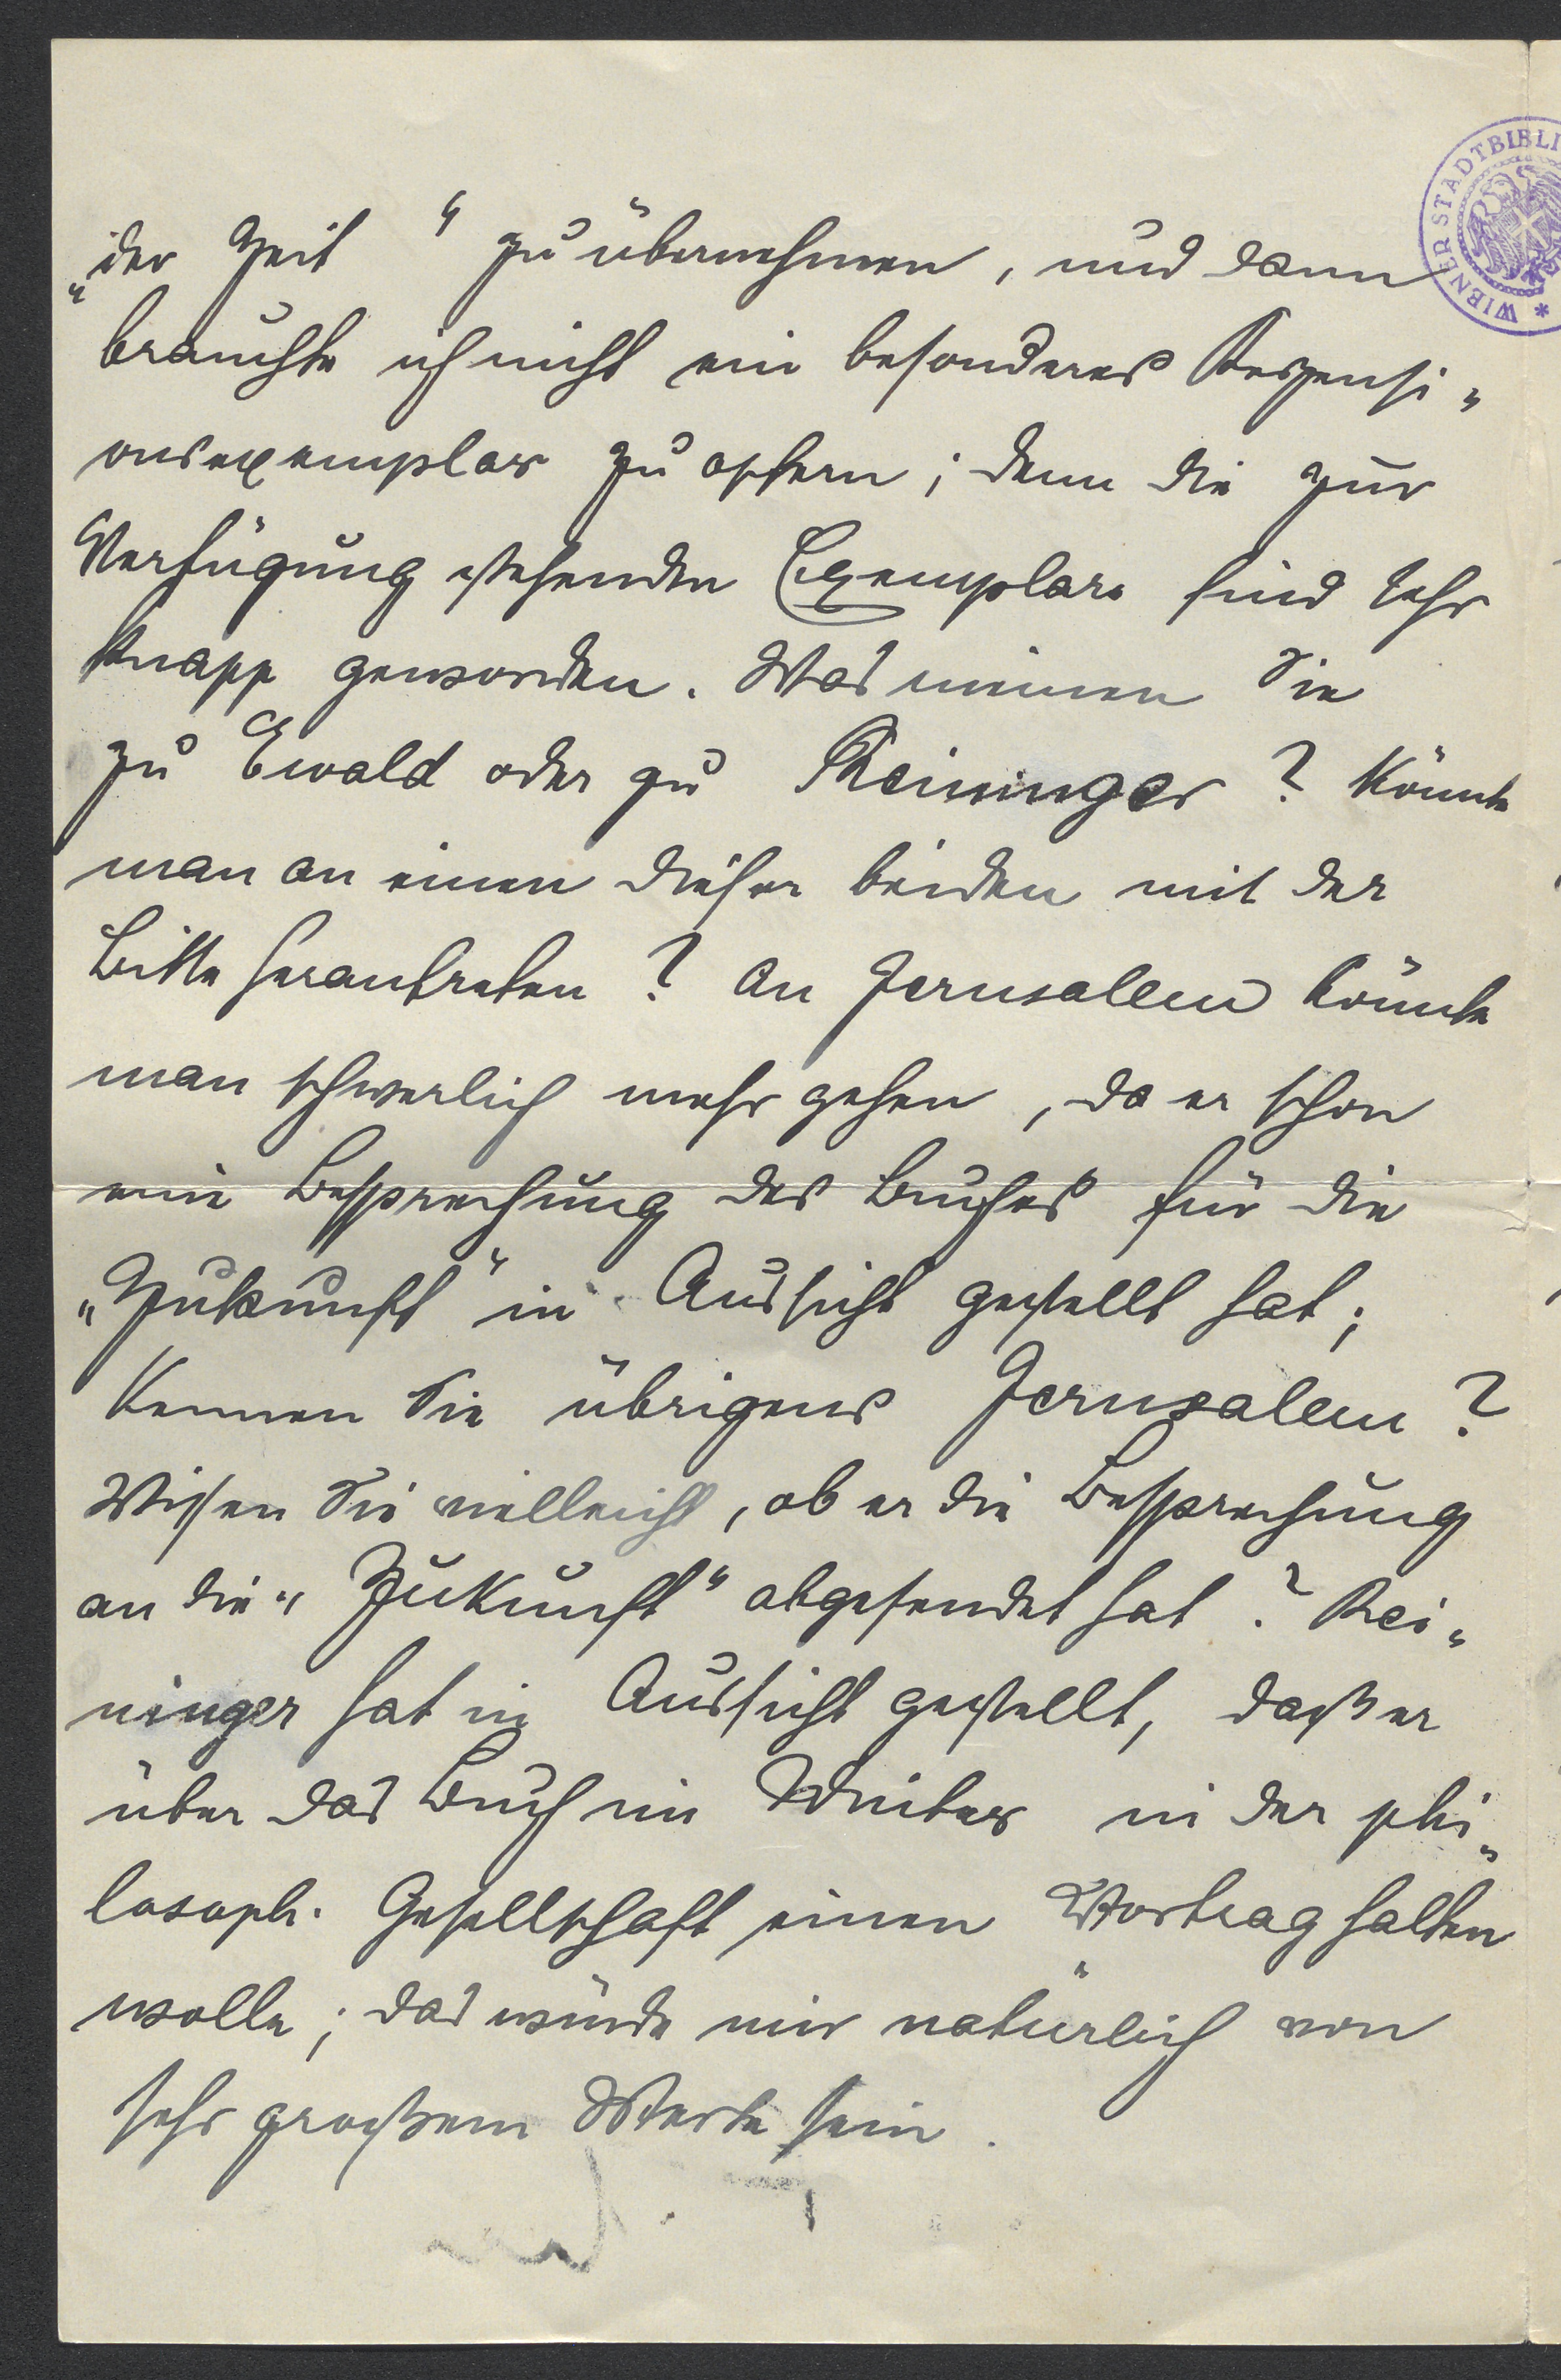 „der Zeit“ zu übernehmen, und dann
brauchte ich nicht ein besonderes Rezensi-
onsexemplar zu opfern; denn die zur
Verfügung stehenden Exemplare sind sehr
knapp geworden. Was meinen Sie
zu Ewald oder zu Reininger? Könnte
man an einen dieser beiden mit der
Bitte herantreten? An Jerusalem könnte
man schwerlich mehr gehen, da er schon
eine Besprechung des Buches für die
„Zukunft“ in Aussicht gestellt hat;
Kennen Sie übrigens Jerusalem?
Wissen Sie vielleicht, ob er die Besprechung
an die „Zukunft“ abgesendet hat? Rei-
ninger hat in Aussicht gestellt, daß er
über das Buch im Winter in der phi-
losoph. Gesellschaft einen Vortrag halten
wolle; das würde mir natürlich von
sehr großem Werte sein.
WIENER STADTBIBLI